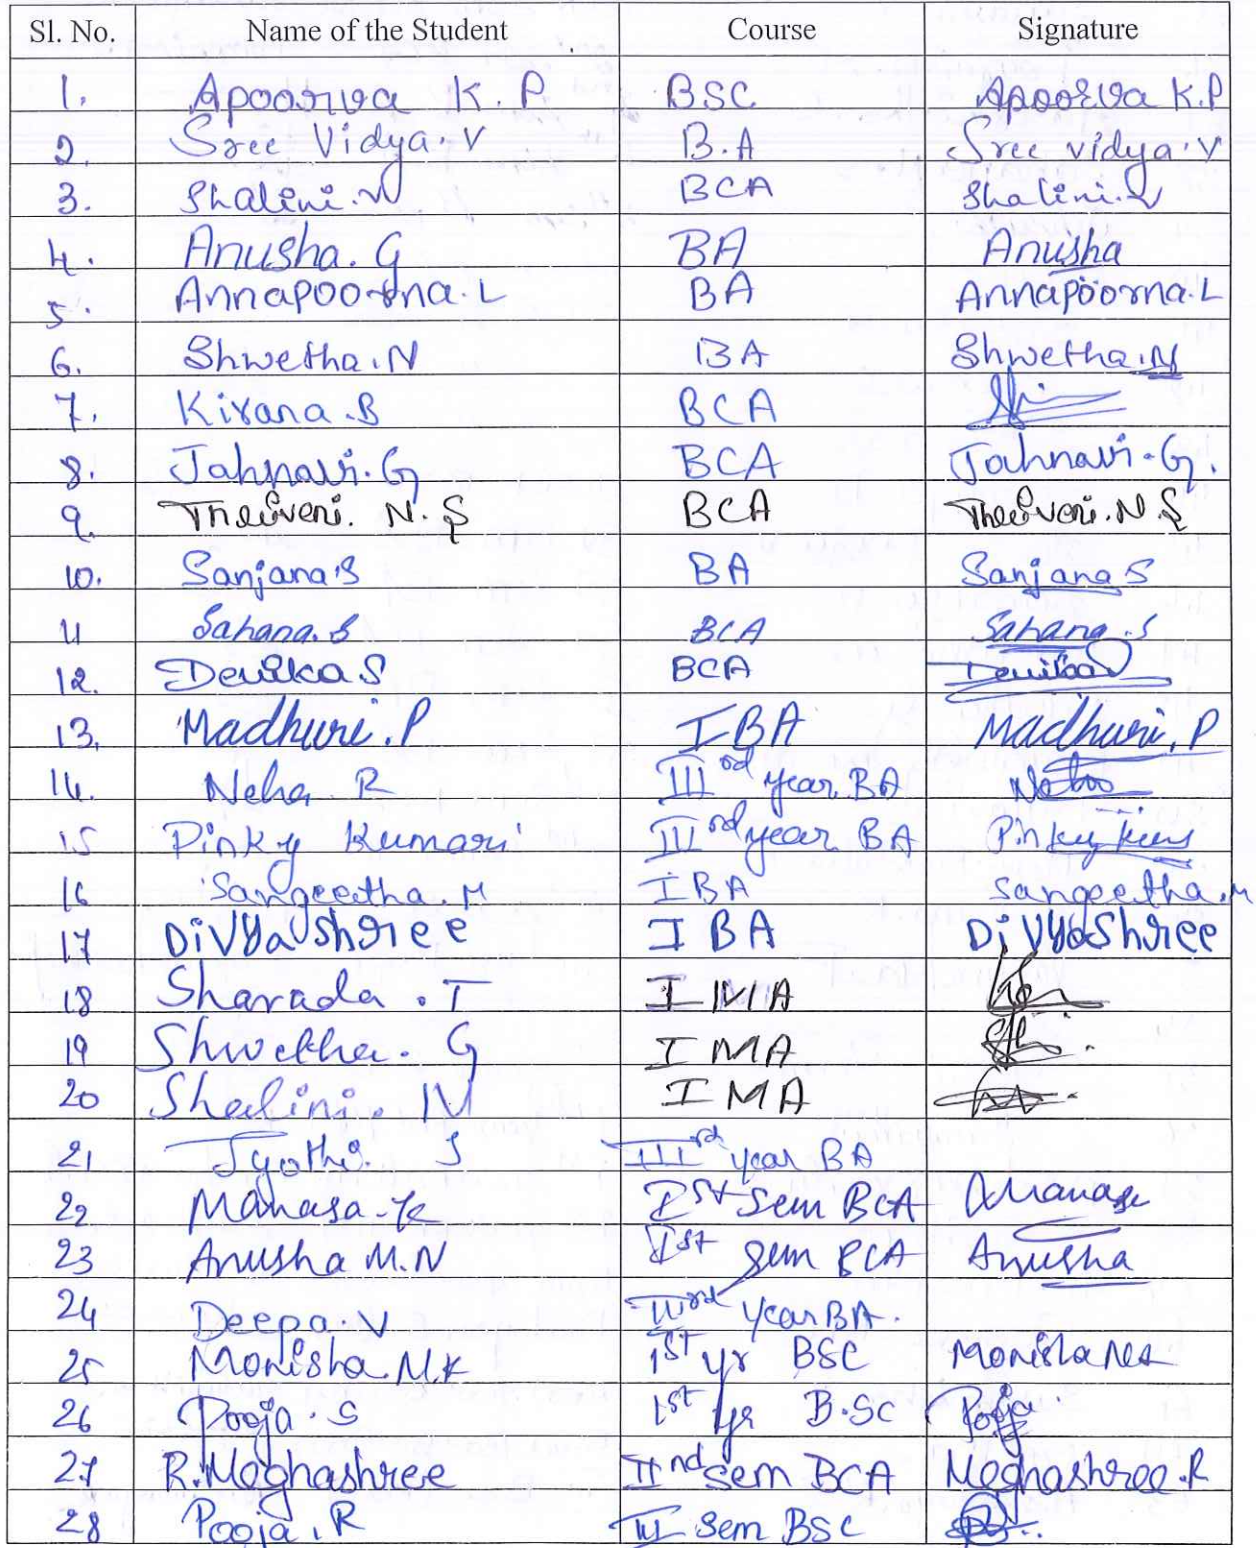 Sl. No. Name of the Student Course Signature
1. Apoorva K. P BSC Apoorva K.P
2. Sree Vidya. V B.A Sree vidya. V
3. Shalini. V BCA Shalini. V
4. Anusha. G BA Anusha
5. Annapoorna. L BA Annapoorna. L
6. Shwetha. N BA Shwetha. N
7. Kirana. B BCA
8. Jahnavi. G BCA Jahnavi. G.
9. Thriveni. N. S BCA Thriveni. N. S
10. Sanjana. S BA Sanjana S
11 Sahana. S BCA Sahana. S
12. Devika S BCA Devika
13. Madhuri. P I BA Madhuri. P
14. Neha R III rd year BA Neha
15 Pinky Kumari III rd year BA Pinky
16 Sangeetha. M I BA Sangeetha. M
17 Divya Shree I BA Divya Shree
18 Sharada . T I MA
19 Shwetha. G I MA
20 Shalini. N I MA
21 Jyothi. S III rd year BA
22 Manasa. K Ist Sem BCA Manasa
23 Anusha M.N Ist Sem BCA Anusha
24 Deepa. V III rd year BA.
25 Monisha M.K 1st yr BSC Monisha
26 Pooja. S 1st yr B.SC Pooja
27 R. Meghashree II nd sem BCA Meghashree. R
28 Pooja. R Sem BSC